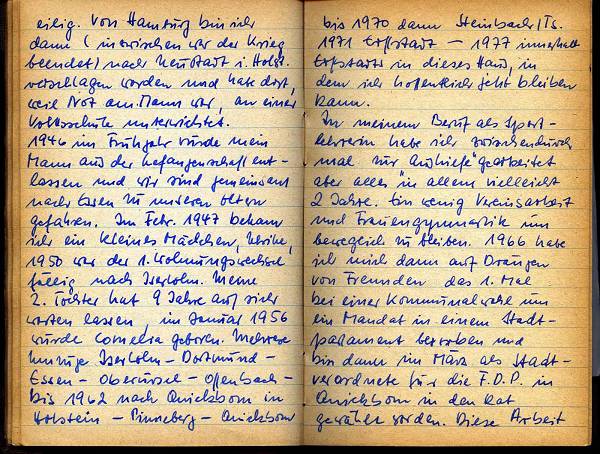 eilig. Von Hamburg bin ich
dann (inzwischen war der Krieg
beendet) nach Neustadt i. Holst.
verschlagen worden und habe dort,
weil Not am Mann war, an einer
Volksschule unterrichtet.
1946 im Frühjahr wurde mein
Mann aus der Gefangenschaft ent-
lassen und wir sind gemeinsam
nach Essen zu unseren Eltern
gefahren. Im Febr. 1947 bekam
ich ein kleines Mädchen, Ulrike,
1950 war der 1. Wohnungswechsel
fällig nach Iserlohn. Meine
2. Tochter hat 9 Jahre auf sich
warten lassen, im Januar 1956
wurde Cornelia geboren. Mehrere
Umzüge Iserlohn - Dortmund -
Essen - Oberursel - Offenbach -
bis 1962 nach Quickborn in
Holstein - Pinneberg - Quickborn
bis 1970 dann Steinbach/Ts.
1971 Erftstadt - 1977 innerhalb
Erftstadts in dieses Haus, in
dem ich hoffentlich jetzt bleiben
kann.
In meinem Beruf als Sport-
lehrerin habe ich zwischendurch
mal zur "Aushilfe" gearbeitet
aber alles in allem vielleicht
2 Jahre. Ein wenig Vereinsarbeit
und Frauengymnastik um
beweglich zu bleiben. 1966 habe
ich mich dann auf Drängen
von Freunden das 1. Mal
bei einer Kommunalwahl um
ein Mandat in einem Stadt-
parlament beworben und
bin dann im März als Stadt-
verordnete für die F.D.P. in
Quickborn in den Rat
gewählt worden. Diese Arbeit